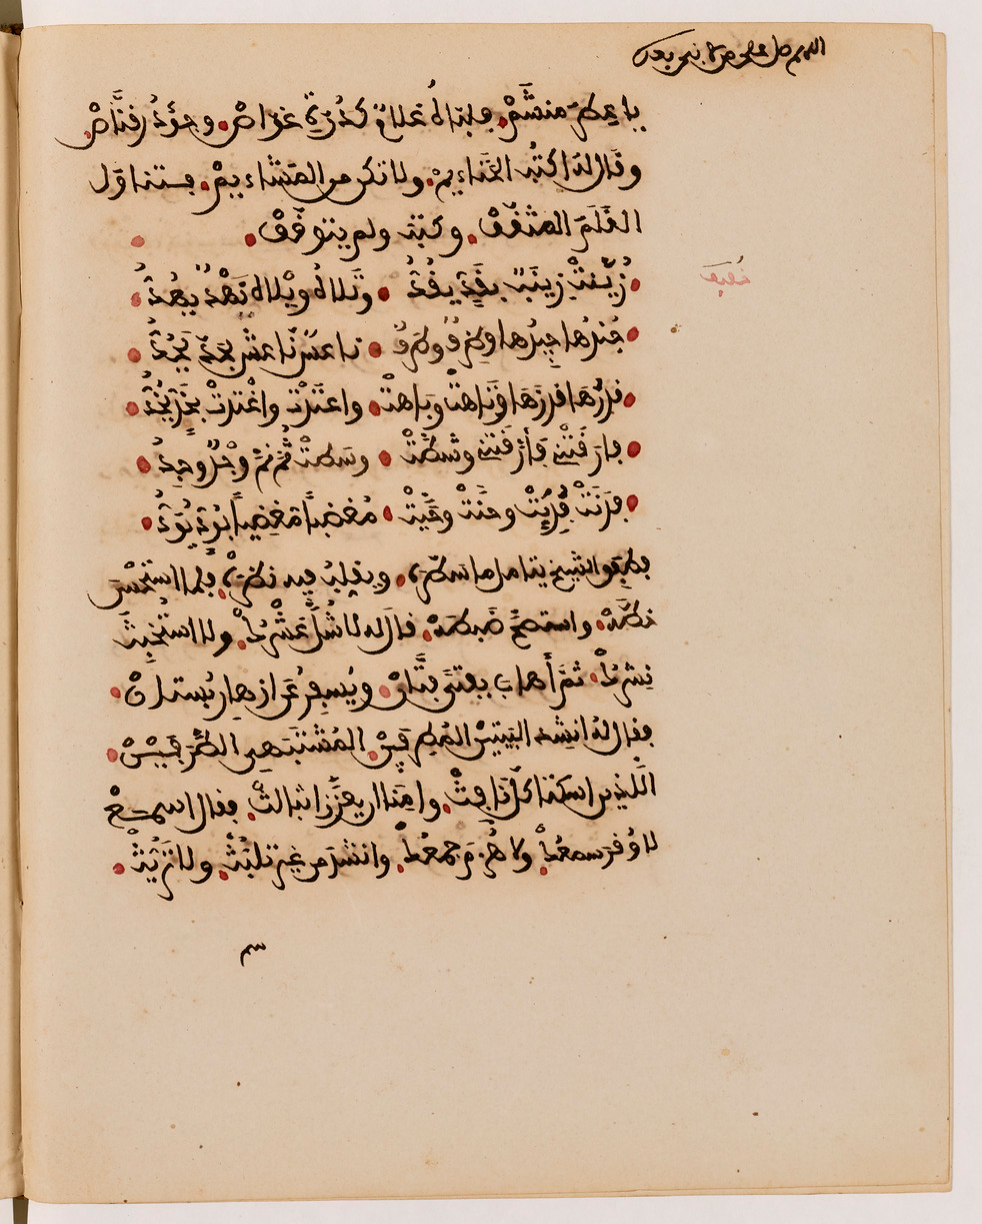 اللهم صل على من لا نبي بعده
يا عطر منشم. فلباه غلام كدرة غواص. وجؤذر قناص
وقال له اكتب المتاءيم. ولا تكن من المشاءيم. فتناول
القلم المثقف. وكتب ولم يتوقف.
زُيّنتْ زينبٌ بقدٍّ يقُدُّ • وتلاهُ ويْلاه نهْدٌ يهُدُّ
جُندها جيدُها وظرفٌ وطرفٌ • ناعسٌ تاعسٌ بحدٍّ يحُدُّ
قدرُها قد زها وتاهتْ وباهتْ • واعتدَتْ واغْتدتْ بخدٍّ يخُدُّ
فارقتْني فأرّقتني وشطّتْ • وسطتْ ثُمّ نمّ وجْدٌ وجدُّ
فدنتْ فُدّيتْ وحنّتْ وحيّتْ • مُغضباً مُغضِياً يودُّ يُودُّ
فطفق الشيخ يتامل ما سطره. ويقلبُ فيه نظره. فلما استحسن
خطّه. واستصحّ ضبطه. قال له لا شُلّ عشْرُكْ. ولا استُخبِثَ
نشرُكْ. ثمّ أهاب بفتىً فتّانْ. ويُسفِرُ عن ازهار بُستانْ
فقال لهُ انشد البيتينْ المُطرفينْ. المُشتبهي الطّرفينْ
اللّذين اسكتا كلّ نافثْ. وامِنا ان يعزّزا بثالثْ. فقال اسمعْ
لا وُقر سمعُكْ. ولا هُزم جمعُكْ. وانشد من غير تلبّثْ. ولا تريّثْ